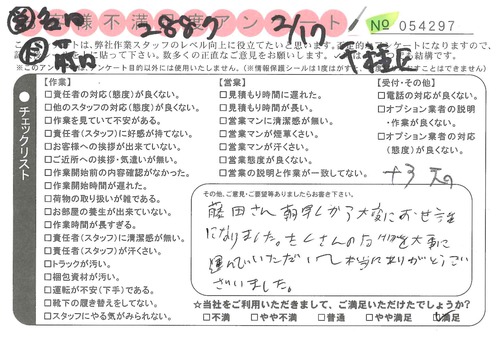 名口 2887 2/17
お客様不満足度アンケート
No 054297
千種区
このアンケートは、弊社作業スタッフのレベル向上に役立てたいと思います。
【作業】
□責任者の対応(態度)が良くない。
□他のスタッフの対応(態度)が良くない。
□作業を見ていて不安がある。
□責任者(スタッフ)に好感が持てない。
□お客様への挨拶が出来ていない。
□ご近所への挨拶・気遣いが無い。
□作業開始前の内容確認がなかった。
□作業開始時間が遅れた。
□荷物の取り扱いが雑である。
□お部屋の養生が出来ていない。
□作業時間が長すぎる。
□責任者(スタッフ)に清潔感が無い。
□責任者(スタッフ)が汗くさい。
□トラックが汚い。
□梱包資材が汚い。
□運転が不安(下手)である。
□靴下の履き替えをしてない。
□スタッフにやる気がみられない。
【営業】
□見積もり時間に遅れた。
□見積もり時間が長い。
□営業マンに清潔感が無い。
□営業マンが煙草くさい。
□営業マンが汗くさい。
□営業態度が良くない。
□営業の説明と作業が一致してない。
【受付・その他】
□電話の対応が良くない。
□オプション業者の説明
・作業が良くない。
□オプション業者の対応
(態度)が良くない。
チェックリスト
その他、ご意見・ご要望等ありましたらお書き下さい。
藤田さん朝早くから大変にお世話
になりました。たくさんの荷物を大事に
運んでいただいて本当にありがとうご
ざいました。
☆当社をご利用いただきまして、ご満足いただけたでしょうか?
□不満 □やや不満 □普通 □やや満足 □満足